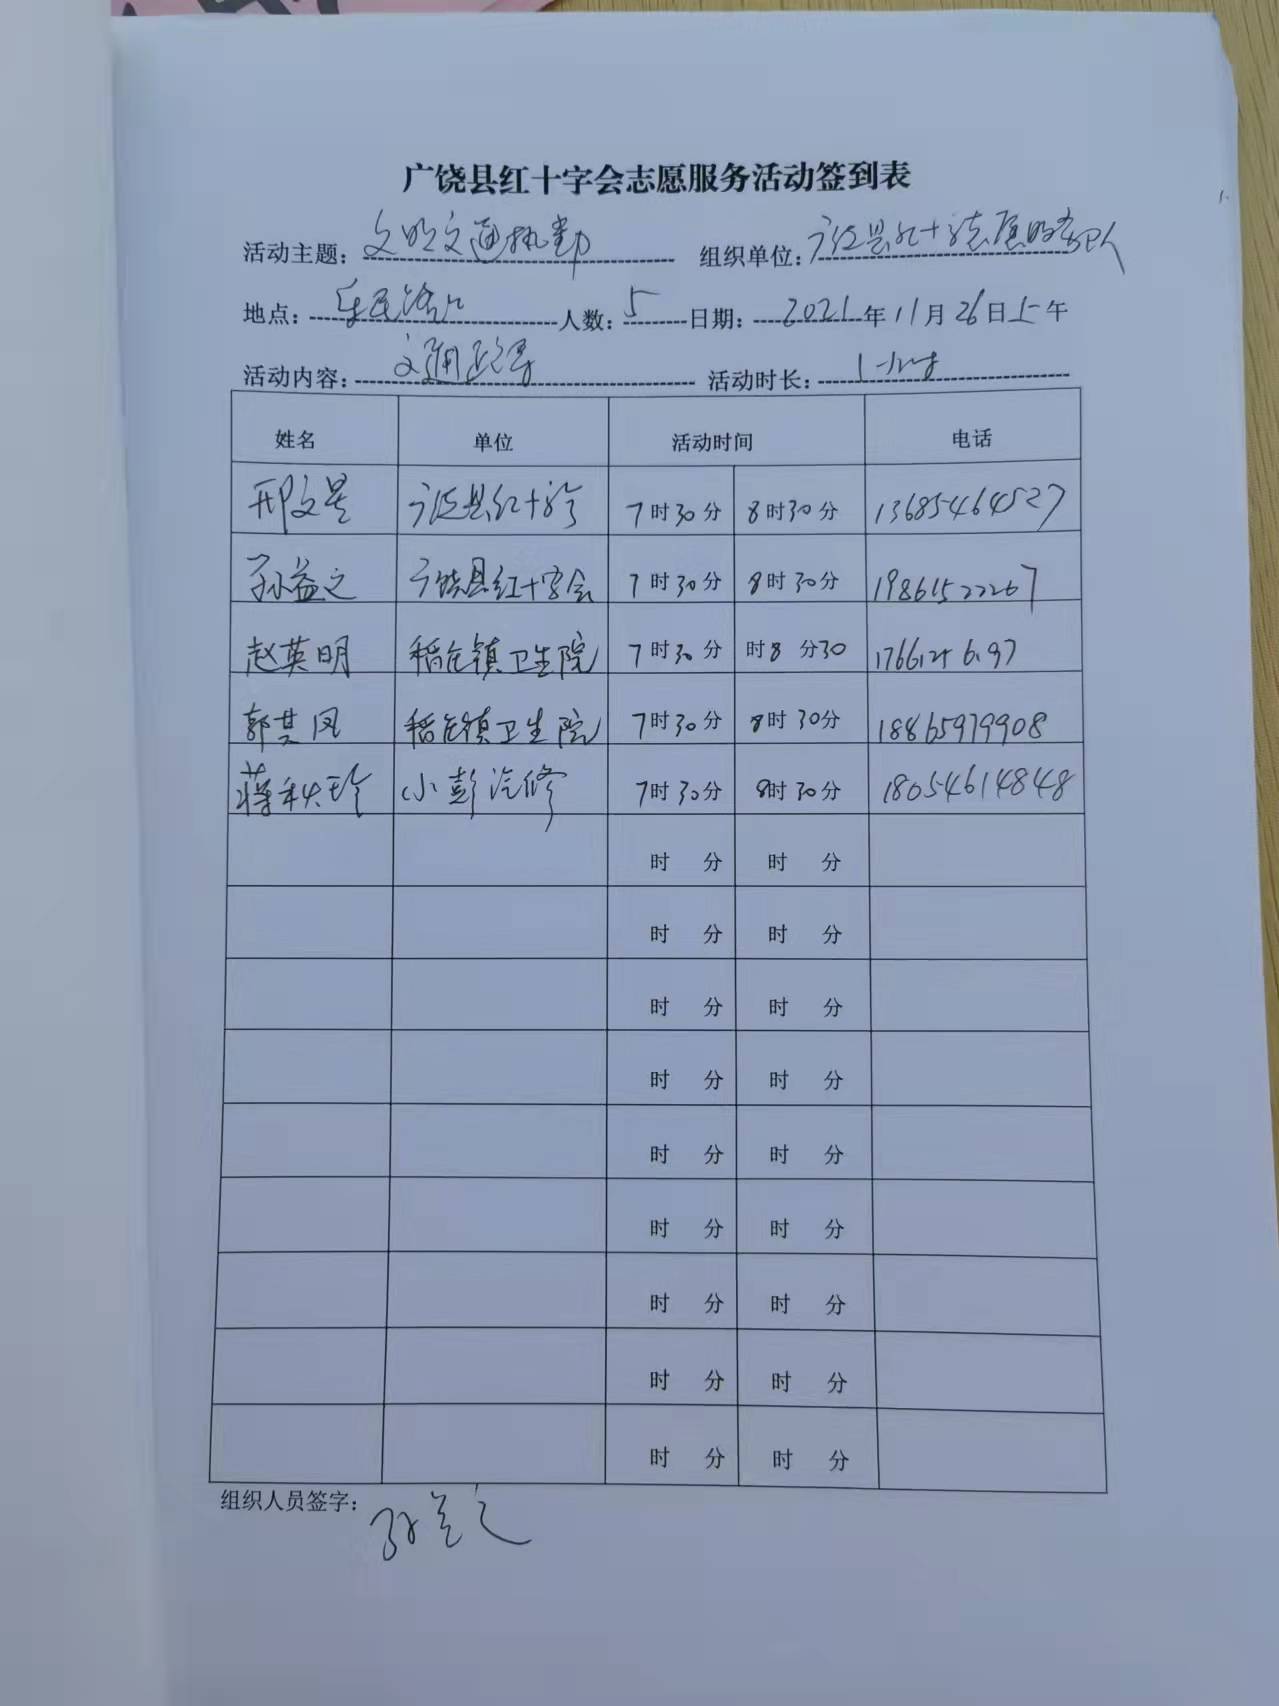 广饶县红十字会志愿服务活动签到表
活动主题：文明交通执勤 组织单位：广饶县红十字志愿服务队
地点：乐民路口 人数：5 日期：2021年11月26日上午
活动内容：交通疏导 活动时长：1小时
姓名 单位 活动时间 电话
邢文昊 广饶县红十字会 7时30分 8时30分 13685464527
孙益之 广饶县红十字会 7时30分 8时30分 19861522267
赵英明 稻庄镇卫生院 7时30分 时8 分30
郭其凤 稻庄镇卫生院 7时30分 8时30分 18865979908
蒋秋珍 小彭汽修 7时30分 8时30分 18054614848
时 分 时 分
时 分 时 分
时 分 时 分
时 分 时 分
时 分 时 分
时 分 时 分
时 分 时 分
时 分 时 分
时 分 时 分
组织人员签字：孙益之